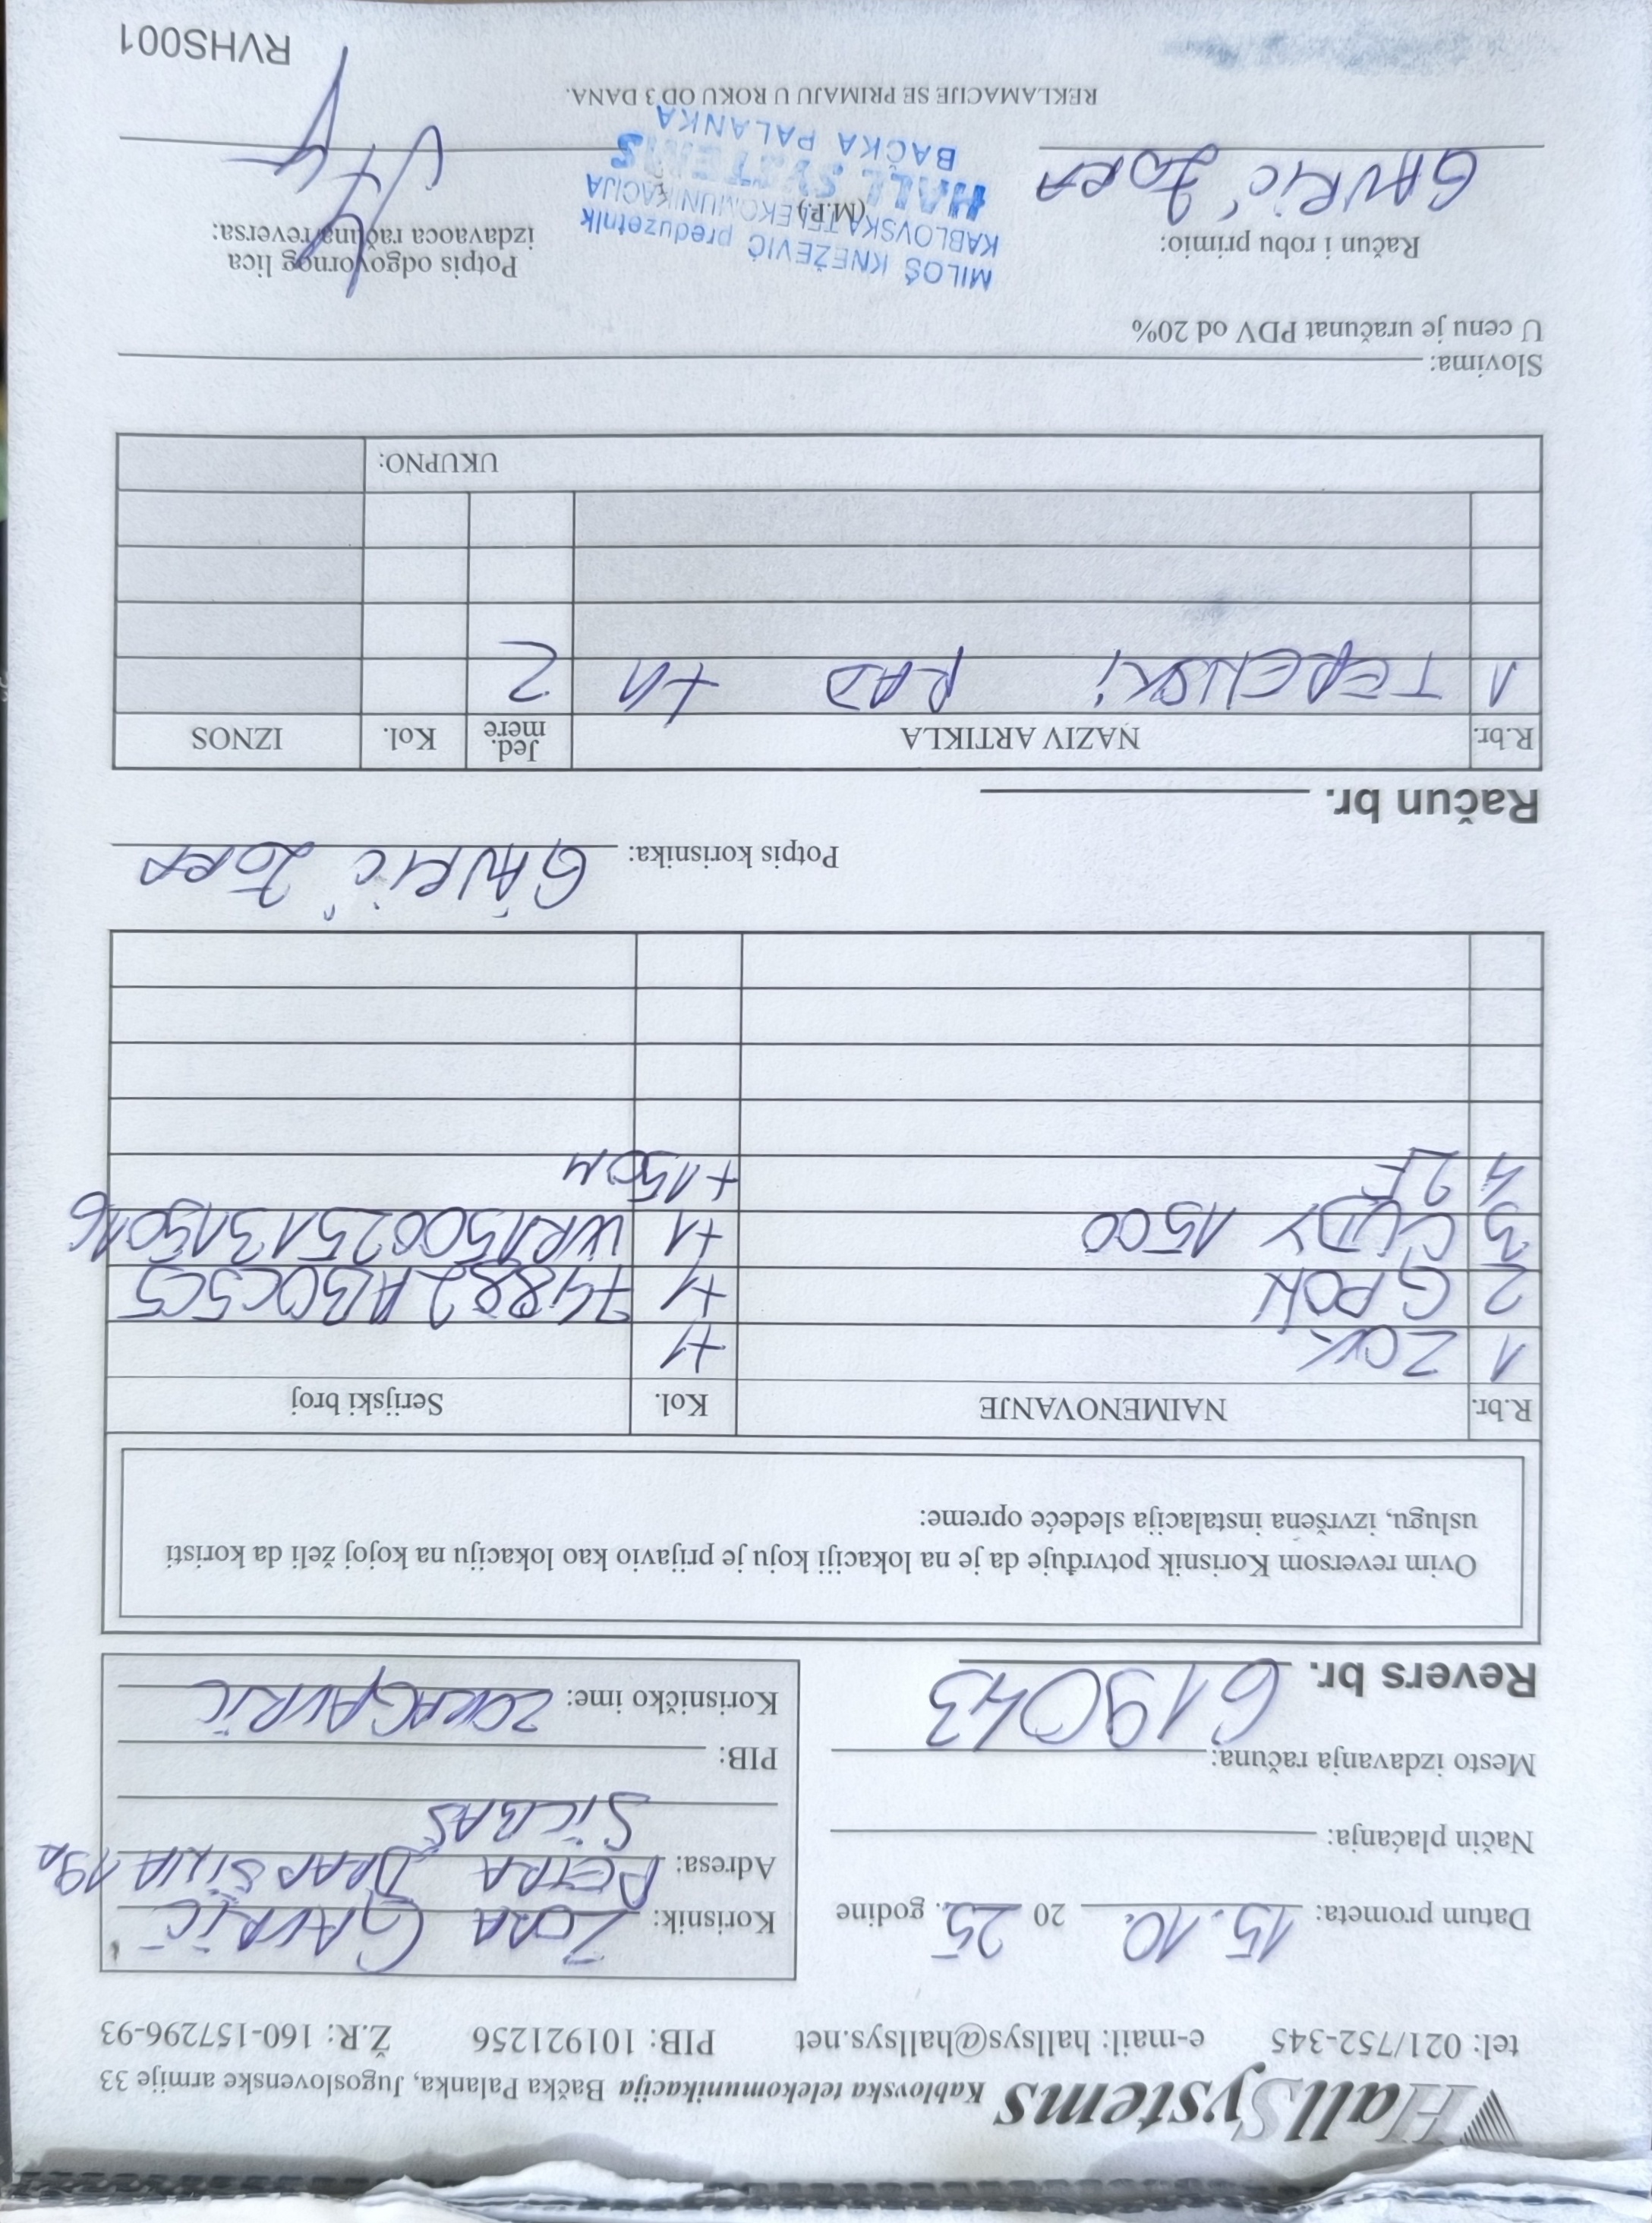 HallSystems Kablovska telekomunikacija Bačka Palanka, Jugoslovenske armije 33
tel: 021/752-345 e-mail: hallsys@hallsys.net PIB: 101921256 Ž.R: 160-157296-93
Datum prometa: 15.10. 20 25. godine
Način plaćanja:
Mesto izdavanja računa:
Revers br. 619043
Korisnik: ZORA GAVRIĆ
Adresa: PETRA DRAPŠINA 19A
SILBAŠ
PIB:
Korisničko ime: ZORAGAVRIC
Ovim reversom Korisnik potvrđuje da je na lokaciji koju je prijavio kao lokaciju na kojoj želi da koristi
uslugu, izvršena instalacija sledeće opreme:
R.br. NAIMENOVANJE Kol. Serijski broj
1 ZOK +1
2 GPON +1 74882AB0C5C5
3 CUDY 1500 +1 WR1500251315016
4 2F +150M
Potpis korisnika: GAVRIĆ ZORA
Račun br.
R.br. NAZIV ARTIKLA Jed. mere Kol. IZNOS
1 TERENSKI RAD +1 2
UKUPNO:
Slovima:
U cenu je uračunat PDV od 20%
Račun i robu primio:
GAVRIĆ ZORA
(M.P.)
MILOŠ KNEŽEVIĆ preduzetnik
KABLOVSKA TELEKOMUNIKACIJA
HALL SYSTEMS
BAČKA PALANKA
Potpis odgovornog lica
izdavaoca računa/reversa:
REKLAMACIJE SE PRIMAJU U ROKU OD 3 DANA.
RVHS001